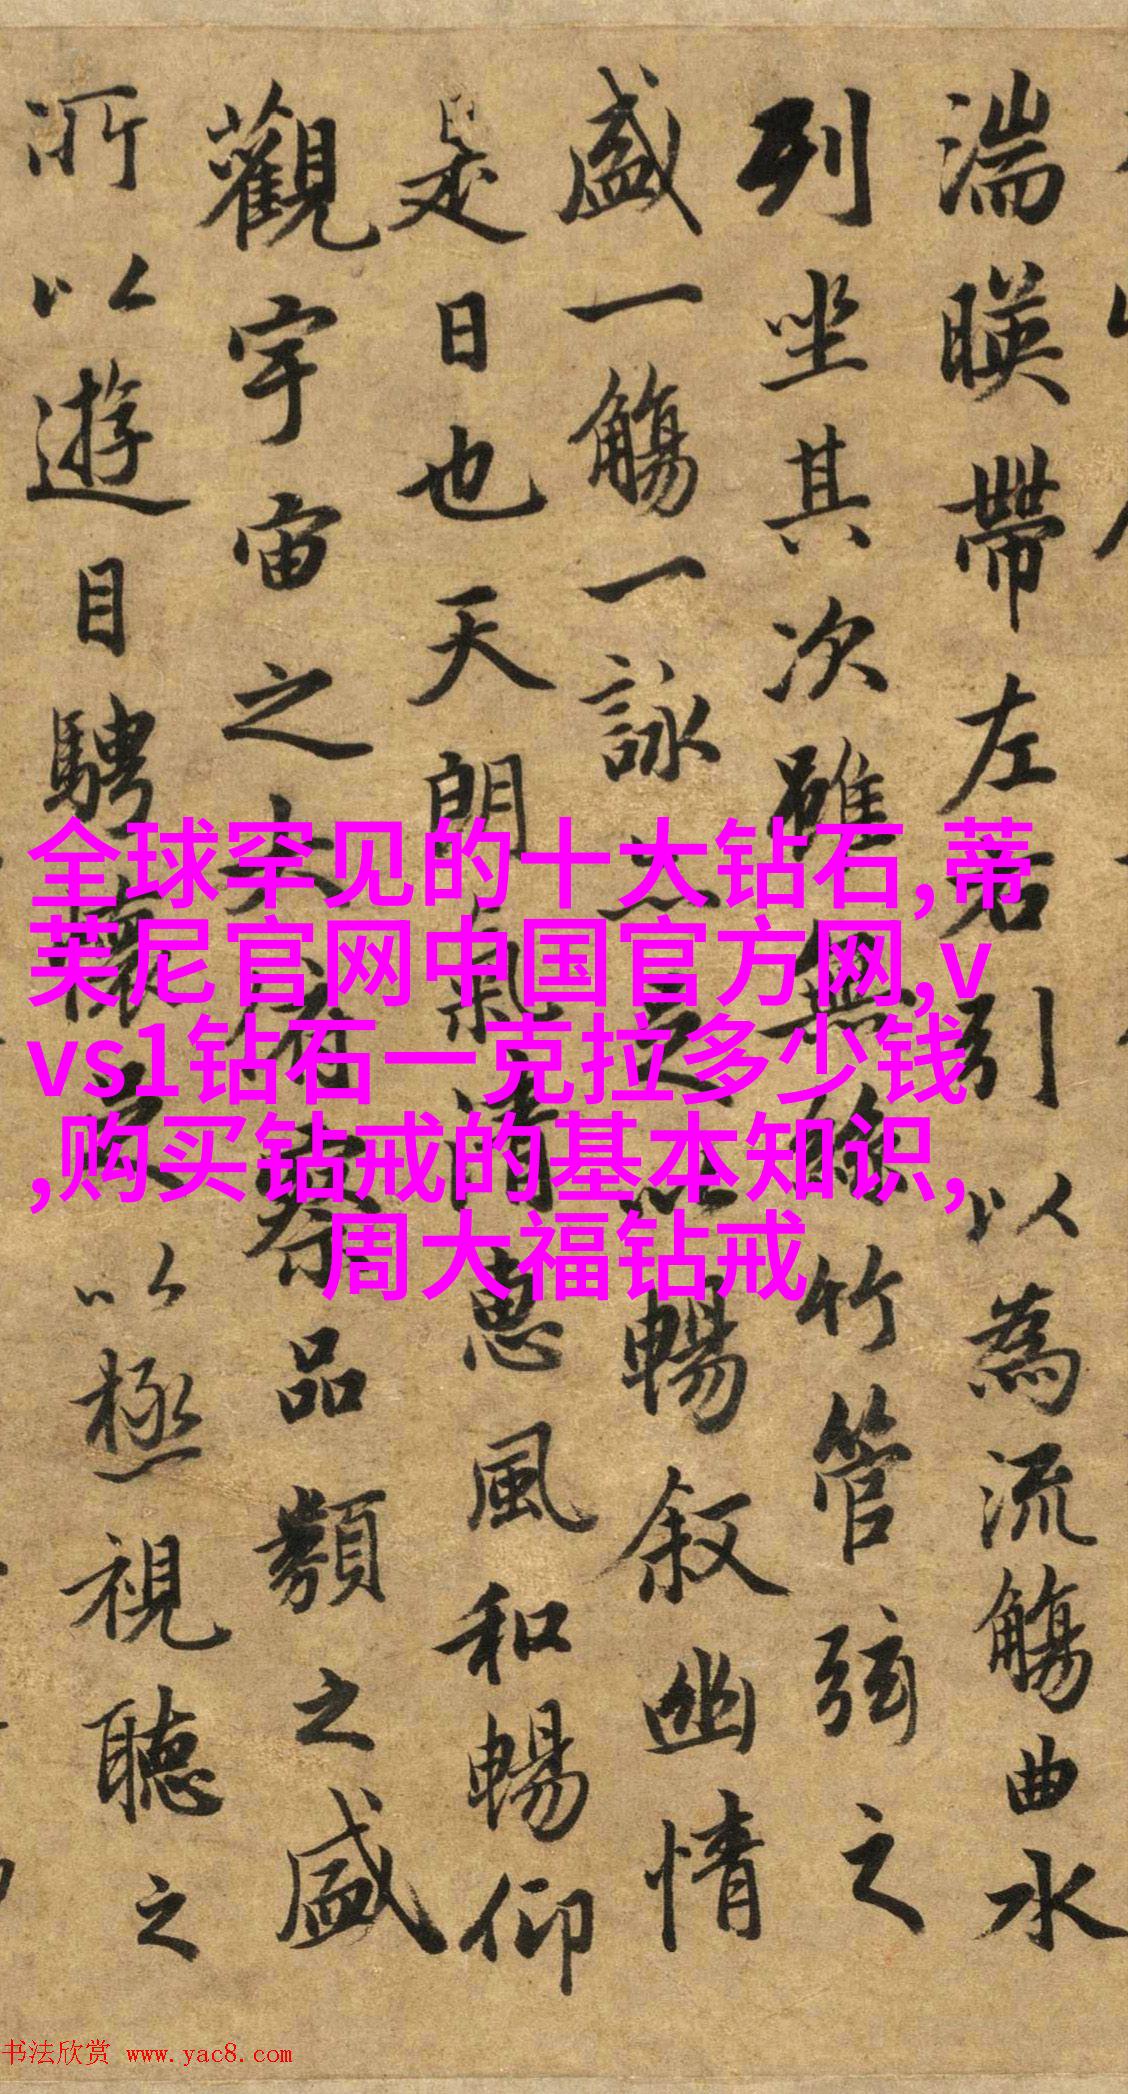 湍暎帶左右引以為流觴曲水
列坐其次雖無絲竹管弦之
盛一觴一詠亦足以暢叙幽情
是日也天朗氣清惠風和暢仰
觀宇宙之大俯察品類之盛
所以遊目騁懷足以極視聽之
全球罕见的十大钻石,蒂
芙尼官网中国官方网,v
vs1钻石一克拉多少钱
,购买钻戒的基本知识,
周大福钻戒
书法欣赏 www.yac8.com